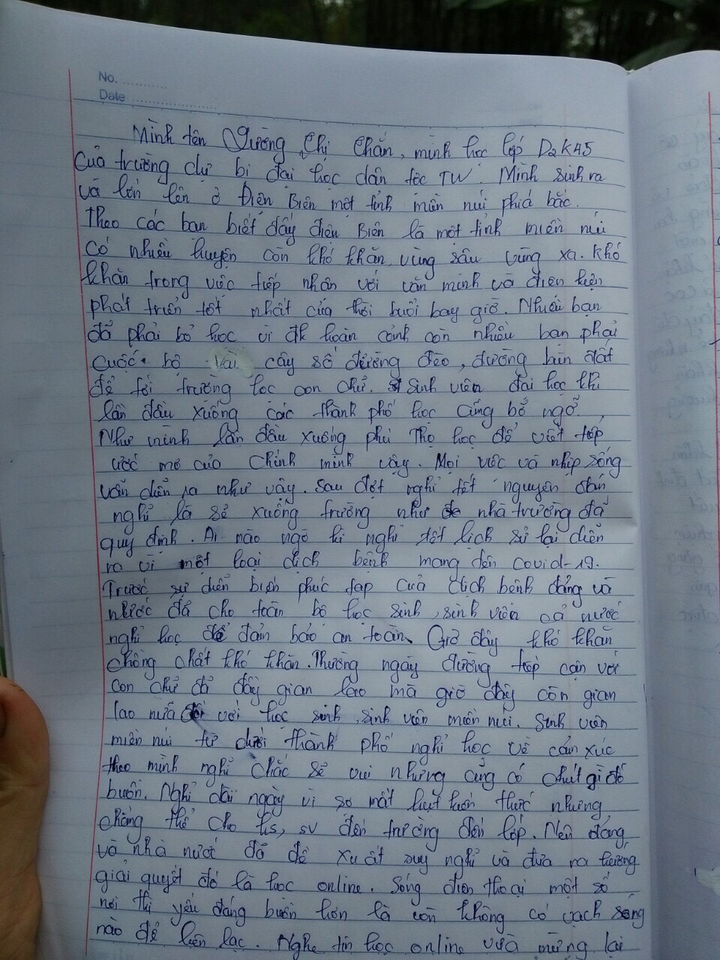 No. ............
Date ......................
Mình tên Giường Thị Chắn, mình học lớp D2K45
của trường dự bị đại học dân tộc TW. Mình sinh ra
và lớn lên ở Điện Biên một tỉnh miền núi phía bắc.
Theo các bạn biết đấy điện Biên là một tỉnh miền núi
có nhiều huyện còn khó khăn, vùng sâu vùng xa. khó
khăn trong việc tiếp nhận với văn minh và điều kiện
phát triển tốt nhất của thời buổi bay giờ. Nhiều bạn
đã phải bỏ học vì đk hoàn cảnh còn nhiều bạn phải
cuốc bộ vài cây số đường đèo, đường bùn đất
để tới trường học con chữ. Sinh viên đại học khi
lần đầu xuống các thành phố học cũng bỡ ngỡ.
Như mình lần đầu xuống phú Thọ học để viết tiếp
ước mơ của chính mình vậy. Mọi việc và nhịp sống
vẫn diễn ra như vậy. Sau đợt nghỉ tết nguyên đán
nghĩ là sẽ xuống trường như nhà trường đã
quy định. Ai nào ngờ kì nghỉ tết lịch sử lại diễn
ra vì một loại dịch bệnh mang đến covid-19.
Trước sự diễn biến phức tạp của dịch bệnh đảng và
nhà nước đã cho toàn bộ học sinh, sinh viên cả nước
nghỉ học để đảm bảo an toàn. Giờ đây khó khăn
chồng chất khó khăn. Thường ngày đường tiếp cận với
con chữ đã đầy gian lao mà giờ đây còn gian
lao nữa đối với học sinh sinh viên miền núi. Sinh viên
miền núi từ dưới thành phố nghỉ học về cảm xúc
theo mình nghĩ chắc sẽ vui nhưng cũng có chút gì đó
buồn. Nghỉ dài ngày vì sợ mất kiến thức nhưng
không thể cho hs, sv đến trường đến lớp. Nên đảng
và nhà nước đã đề xuất suy nghĩ và đưa ra hướng
giải quyết đó là học online. Sóng điện thoại một số
nơi thì yếu đáng buồn hơn là còn không có vạch sóng
nào để liên lạc. Nghe tin học online vừa mừng lại